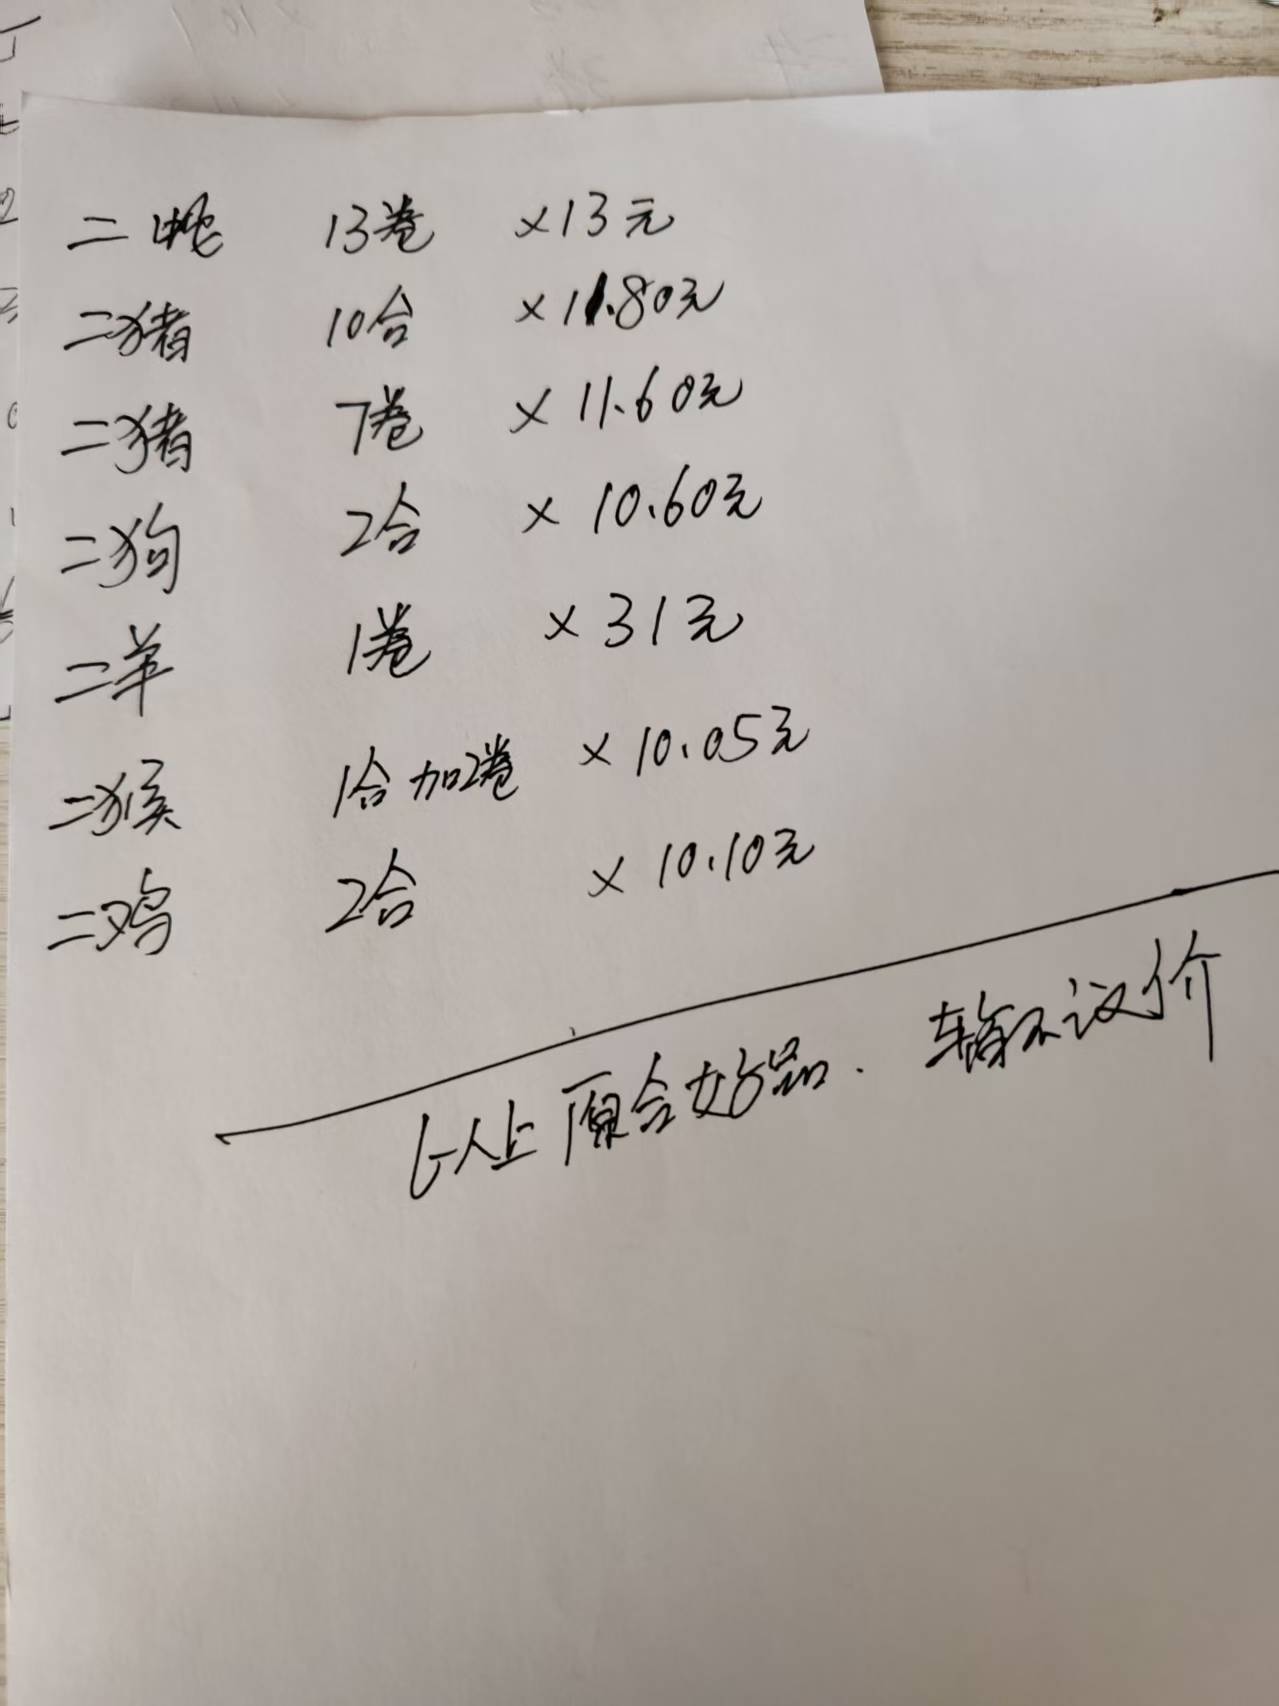 二蛇 13卷 ×13元
二猪 10合 ×11.80元
二猪 7卷 ×11.60元
二狗 2合 ×10.60元
二羊 1卷 ×31元
二猴 1合加2卷 ×10.05元
二鸡 2合 ×10.10元
以上原合好品. 输不议价